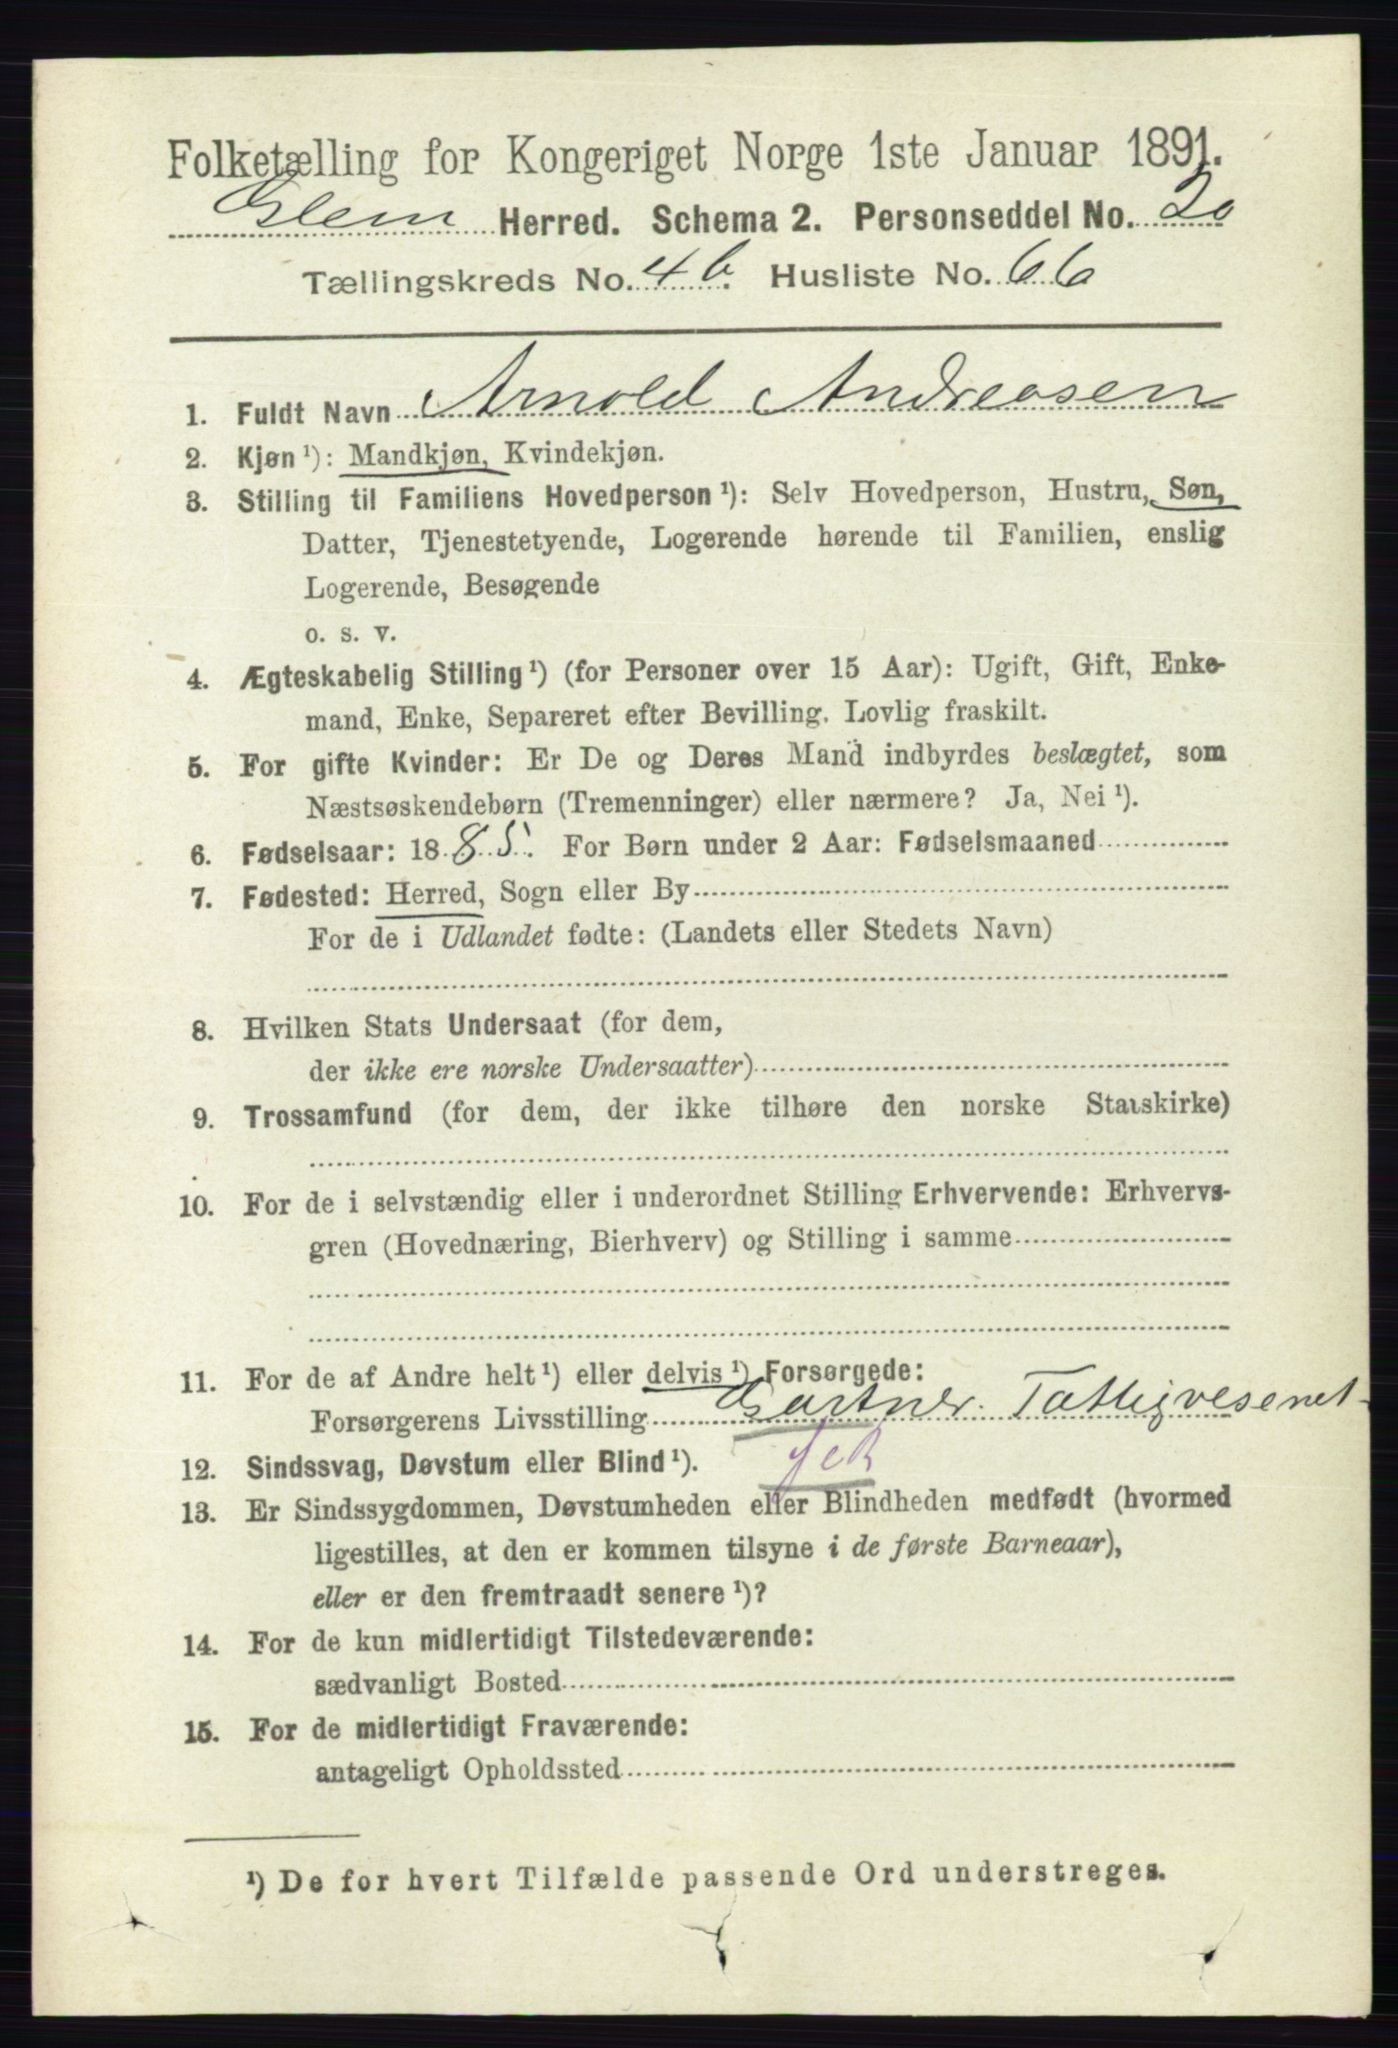 Folketælling for Kongeriget Norge 1ste Januar 1891.
Glem Herred. Schema 2. Personseddel No. 20
Tællingskreds No. 4 b. Husliste No. 66
1. Fuldt Navn Arnold Andreasen
2. Kjøn ¹): Mandkjøn, Kvindekjøn.
3. Stilling til Familiens Hovedperson ¹): Selv Hovedperson, Hustru, Søn,
Datter, Tjenestetyende, Logerende hørende til Familien, enslig
Logerende, Besøgende
o. s. v.
4. Ægteskabelig Stilling ¹) (for Personer over 15 Aar): Ugift, Gift, Enke-
mand, Enke, Separeret efter Bevilling. Lovlig fraskilt.
5. For gifte Kvinder: Er De og Deres Mand indbyrdes beslægtet, som
Næstsøskendebørn (Tremenninger) eller nærmere? Ja, Nei ¹).
6. Fødselsaar: 1885. For Børn under 2 Aar: Fødselsmaaned
7. Fødested: Herred, Sogn eller By
For de i Udlandet fødte: (Landets eller Stedets Navn)
8. Hvilken Stats Undersaat (for dem,
der ikke ere norske Undersaatter)
9. Trossamfund (for dem, der ikke tilhøre den norske Statskirke)
10. For de i selvstændig eller i underordnet Stilling Erhvervende: Erhvervs-
gren (Hovednæring, Bierhverv) og Stilling i samme
11. For de af Andre helt ¹) eller delvis ¹) Forsørgede:
Forsørgerens Livsstilling Gartner. Fattigvesenet
12. Sindssvag, Døvstum eller Blind ¹).
13. Er Sindssygdommen, Døvstumheden eller Blindheden medfødt (hvormed
ligestilles, at den er kommen tilsyne i de første Barneaar),
eller er den fremtraadt senere ¹)?
14. For de kun midlertidigt Tilstedeværende:
sædvanligt Bosted
15. For de midlertidigt Fraværende:
antageligt Opholdssted
¹) De for hvert Tilfælde passende Ord understreges.